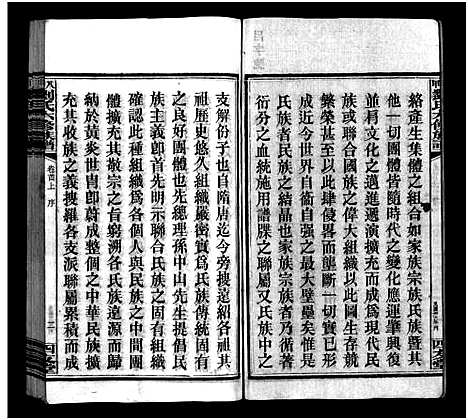 絡產生集體之組合如家族宗族氏族暨其
他一切團體皆隨時代之變化應運肇興復
並肩文化之邁進遞演擴充於當今現代民
族或聯合國族之偉大組織以此圖生存競
繁榮甚至以此肆侵畧而釀成戰禍者實形
成近今世界之最大壁壘矣惟國族者乃係
民族者之結晶也家族宗族者乃循
衍分之血統施用譜牒之聯屬又氏族中之
支解份子也自隋唐迄今旁搜遠紹各祖其
祖歷史悠久組織嚴密實爲氏族傳統固有
之良好團體也先總理孫中山先生提倡民
族主義卽首先明示聯合氏族之固有組織
確認此種組織爲各個人與民族之中間團
體擴充其敬宗之者窮溯各氏族遠源而歸
納於黃炎世冑卽蔚成整個之中華民族擴
充其收族之義搜羅各支派聯屬累積而成
劉氏六修族譜
卷首上
序